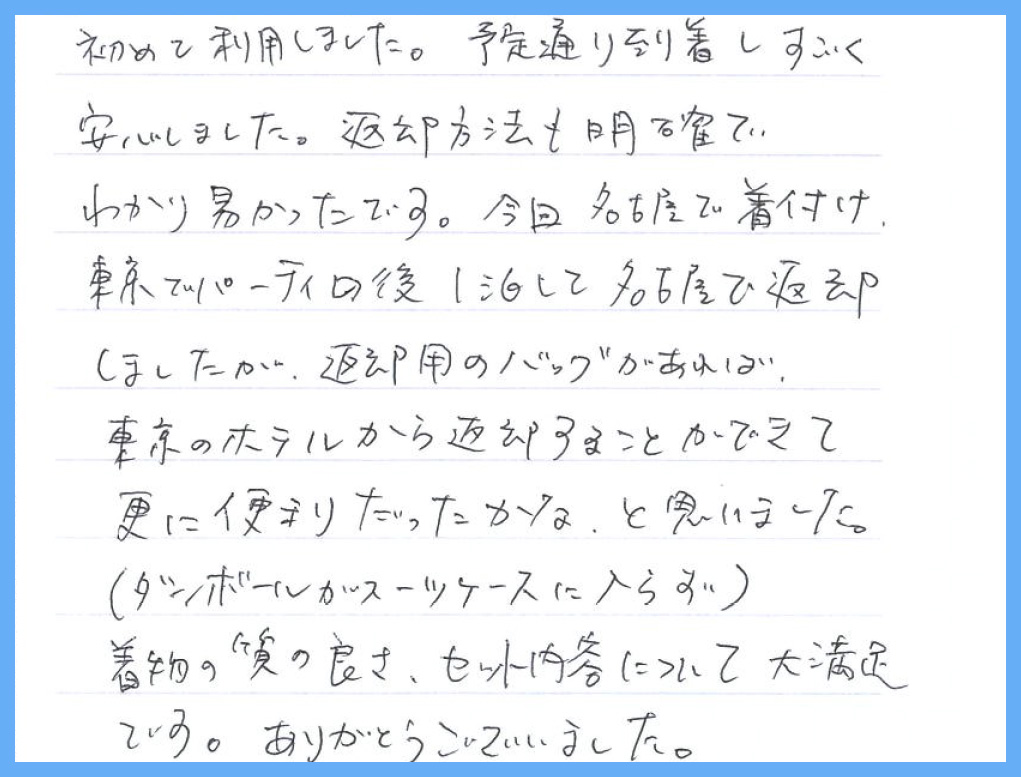 初めて利用しました。予定通り到着しすごく
安心しました。返却方法も明確で
わかり易かったです。今回名古屋で着付け、
東京でパーティの後1泊して名古屋で返却
しましたが、返却用のバッグがあれば、
東京のホテルから返却することができて
更に便利だったかな、と思いました。
(ダンボールがスーツケースに入らず)
着物の質の良さ、セット内容について大満足
です。ありがとうございました。